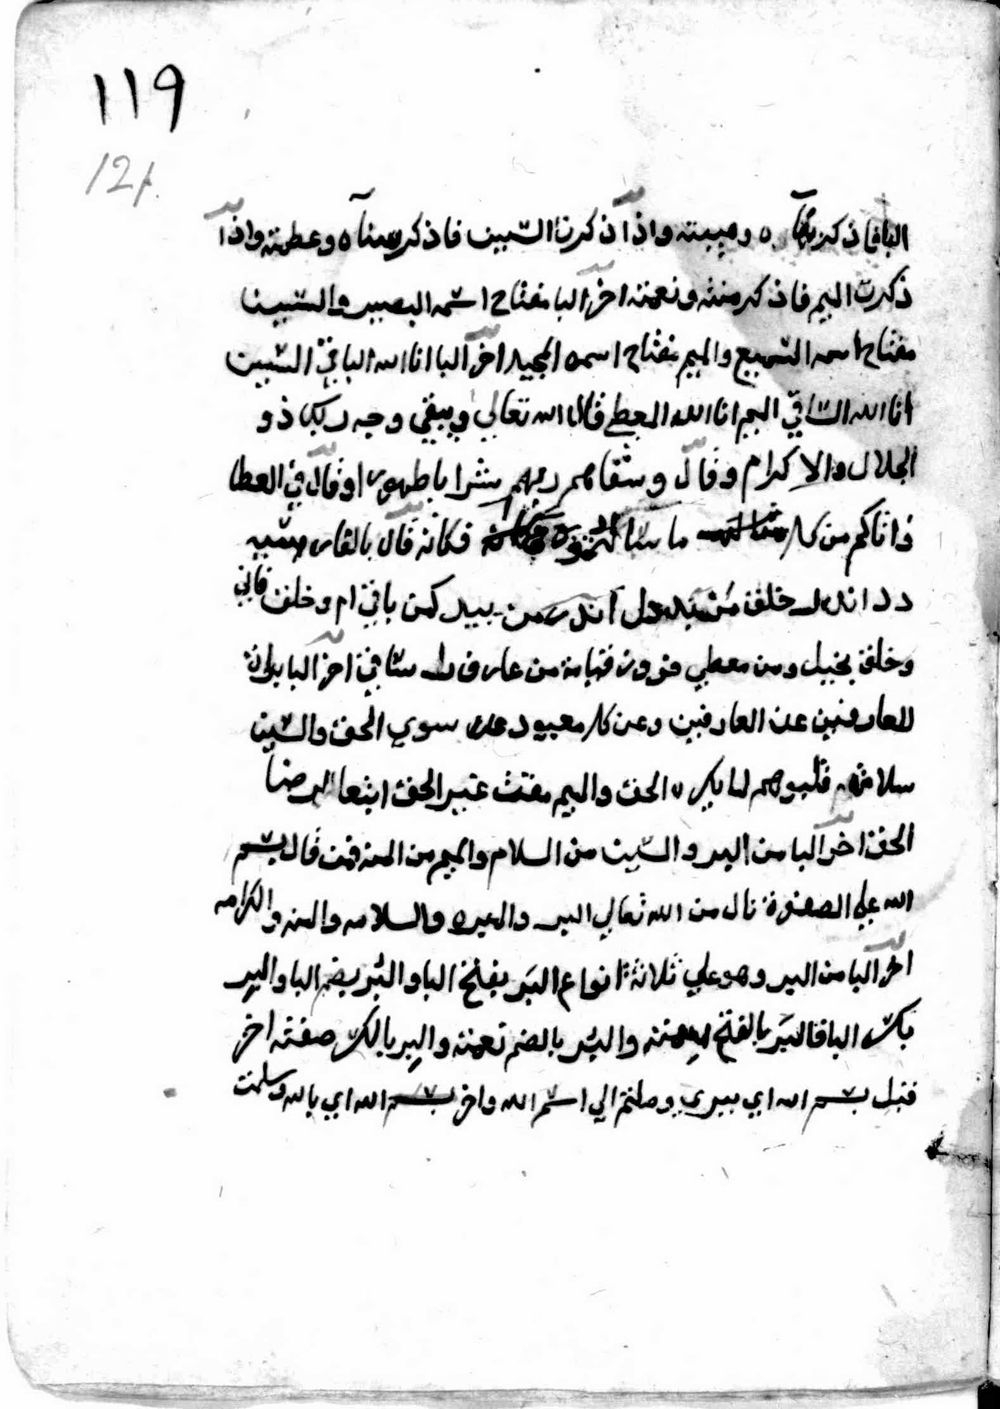 ١١٩
121
البا فاذكر بهاه وهيبته واذا ذكرت السين فاذكر سناه وعظمته واذا
ذكرت الميم فاذكر منته ونعمته اخر البا مفتاح اسمه البصير والسين
مفتاح اسمه السميع والميم مفتاح اسمه المجيد اخر البا انا الله الباقي السين
انا الله الشافي الميم انا الله المعطي قال الله تعالي ويبقي وجه ربك ذو
الجلال والاكرام وقال وسقاهم ربهم شرابا طهورا وقال في العطا
واتاكم من كل ما سالتموه فكانه قال
خلق من باقي ام وخلق فاني
وخلق بخيل ومن معطي من عارف شافي اخر البا براة
للعارفين عن العارفين وعن كل معبود سوي الحق والسين
سلامة قلوبهم لما يكره الحق والميم مقت غير الحق ابتغا لرضا
الحق اخر البا من البر والسين من السلام والميم من المنه فمن قال بسم
الله علي الصفوة نال من الله تعالي البر والسلامه والمنه والكرامه
اخر البا من البر وهو علي ثلاثة انواع البَر بفتح البا والبُر بضم البا والبِر
بكسر البا فالبَر بالفتح والبُر بالضم نعمته والبِر بالكسر صفته اخر
فقيل بسم الله اي ببري وصلتم الي اسم الله واخر بسم الله اي بالله وسلمت